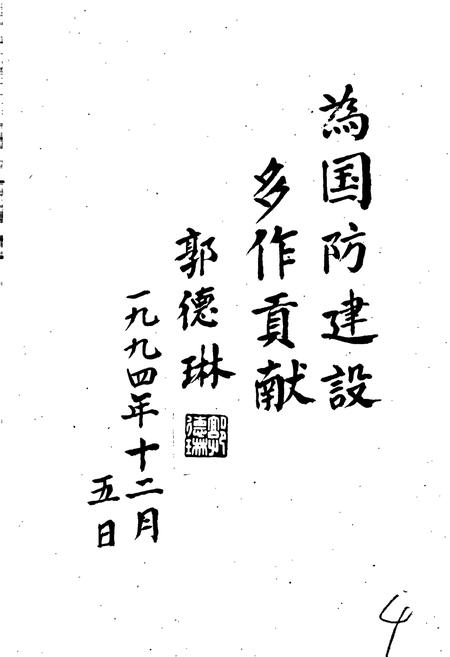 為国防建設
多作貢献
郭德琳
郭德琳
一九九四年十二月
五日
4